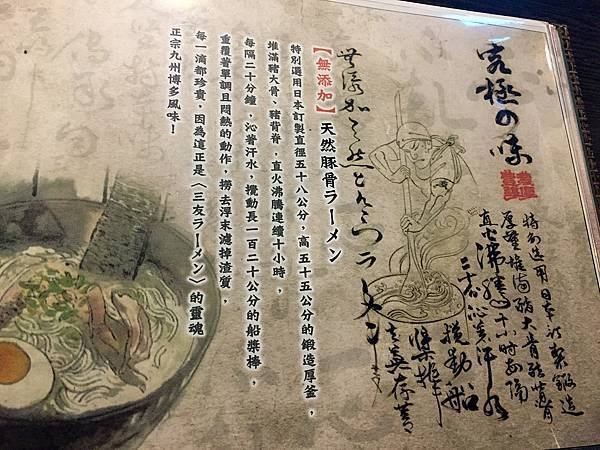 究極の味
特別選用日本訂製鍛造
厚釜堆滿豬大骨豬背脊
直火沸騰十小時每隔
二十
沁著汗水
攪動船
槳棒
無添加天然とんこつラーメン
【無添加】天然豚骨ラーメン
特別選用日本訂製直徑五十八公分，高五十五公分的鍛造厚釜，
堆滿豬大骨、豬背脊，直火沸騰連續十小時，
每隔二十分鐘，沁著汗水，攪動長一百二十公分的船槳棒，
重覆著單調且悶熱的動作，撈去浮末濾掉渣質，
每一滴都珍貴，因為這正是〈三友ラーメン〉的靈魂
正宗九州博多風味！